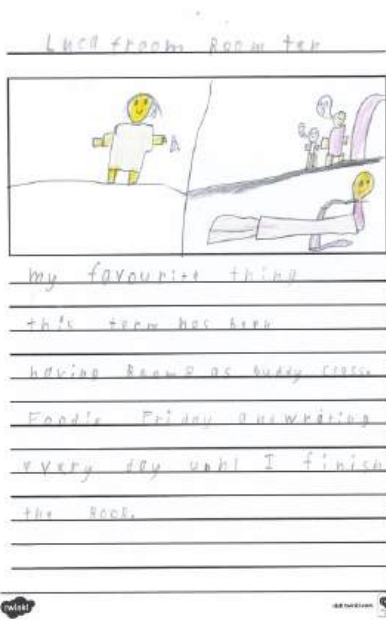 Luca froom Room ten
my favourite thing
this term has been
having Room 8 as buddy class.
Foodie Friday and writing
every day until I finish
the Book.
twinkl
visit twinkl.com